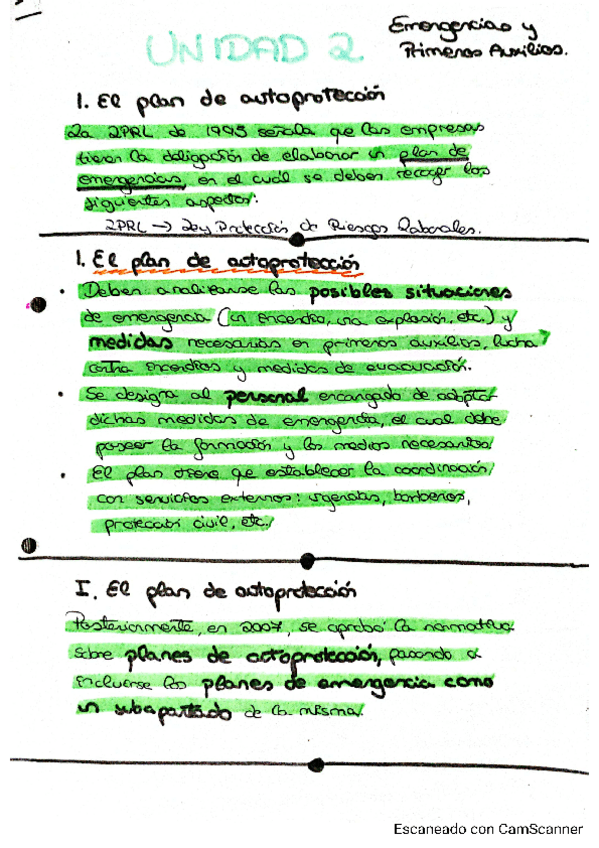 Emergencias y
UNIDAD 2
Primeros Auxilios.
1. El plan de autoprotección
La LPRL de 1995 señala que las empresas
tienen la obligación de elaborar un plan de
emergencias, en el cuál se deben recoger los
siguientes aspectos:
LPRL → Ley Protección de Riesgos Laborales.
1. El plan de autoprotección
• Deben analizarse las posibles situaciones
de emergencia (un incendio, una explosión, etc.) y
medidas necesarias en primeros auxilios, lucha
contra incendios y medidas de evacuación.
• Se designa al personal encargado de adoptar
dichas medidas de emergencia, el cual debe
poseer la formación y los medios necesarios
• El plan tiene que establecer la coordinación
con servicios externos: urgencias, bomberos,
protección civil, etc.
I. El plan de autoprotección
Posteriormente, en 2007, se aprobó la normativa
sobre planes de autoprotección, pasando a
incluirse los planes de emergencia como
un subapartado de la misma.
Escaneado con CamScanner